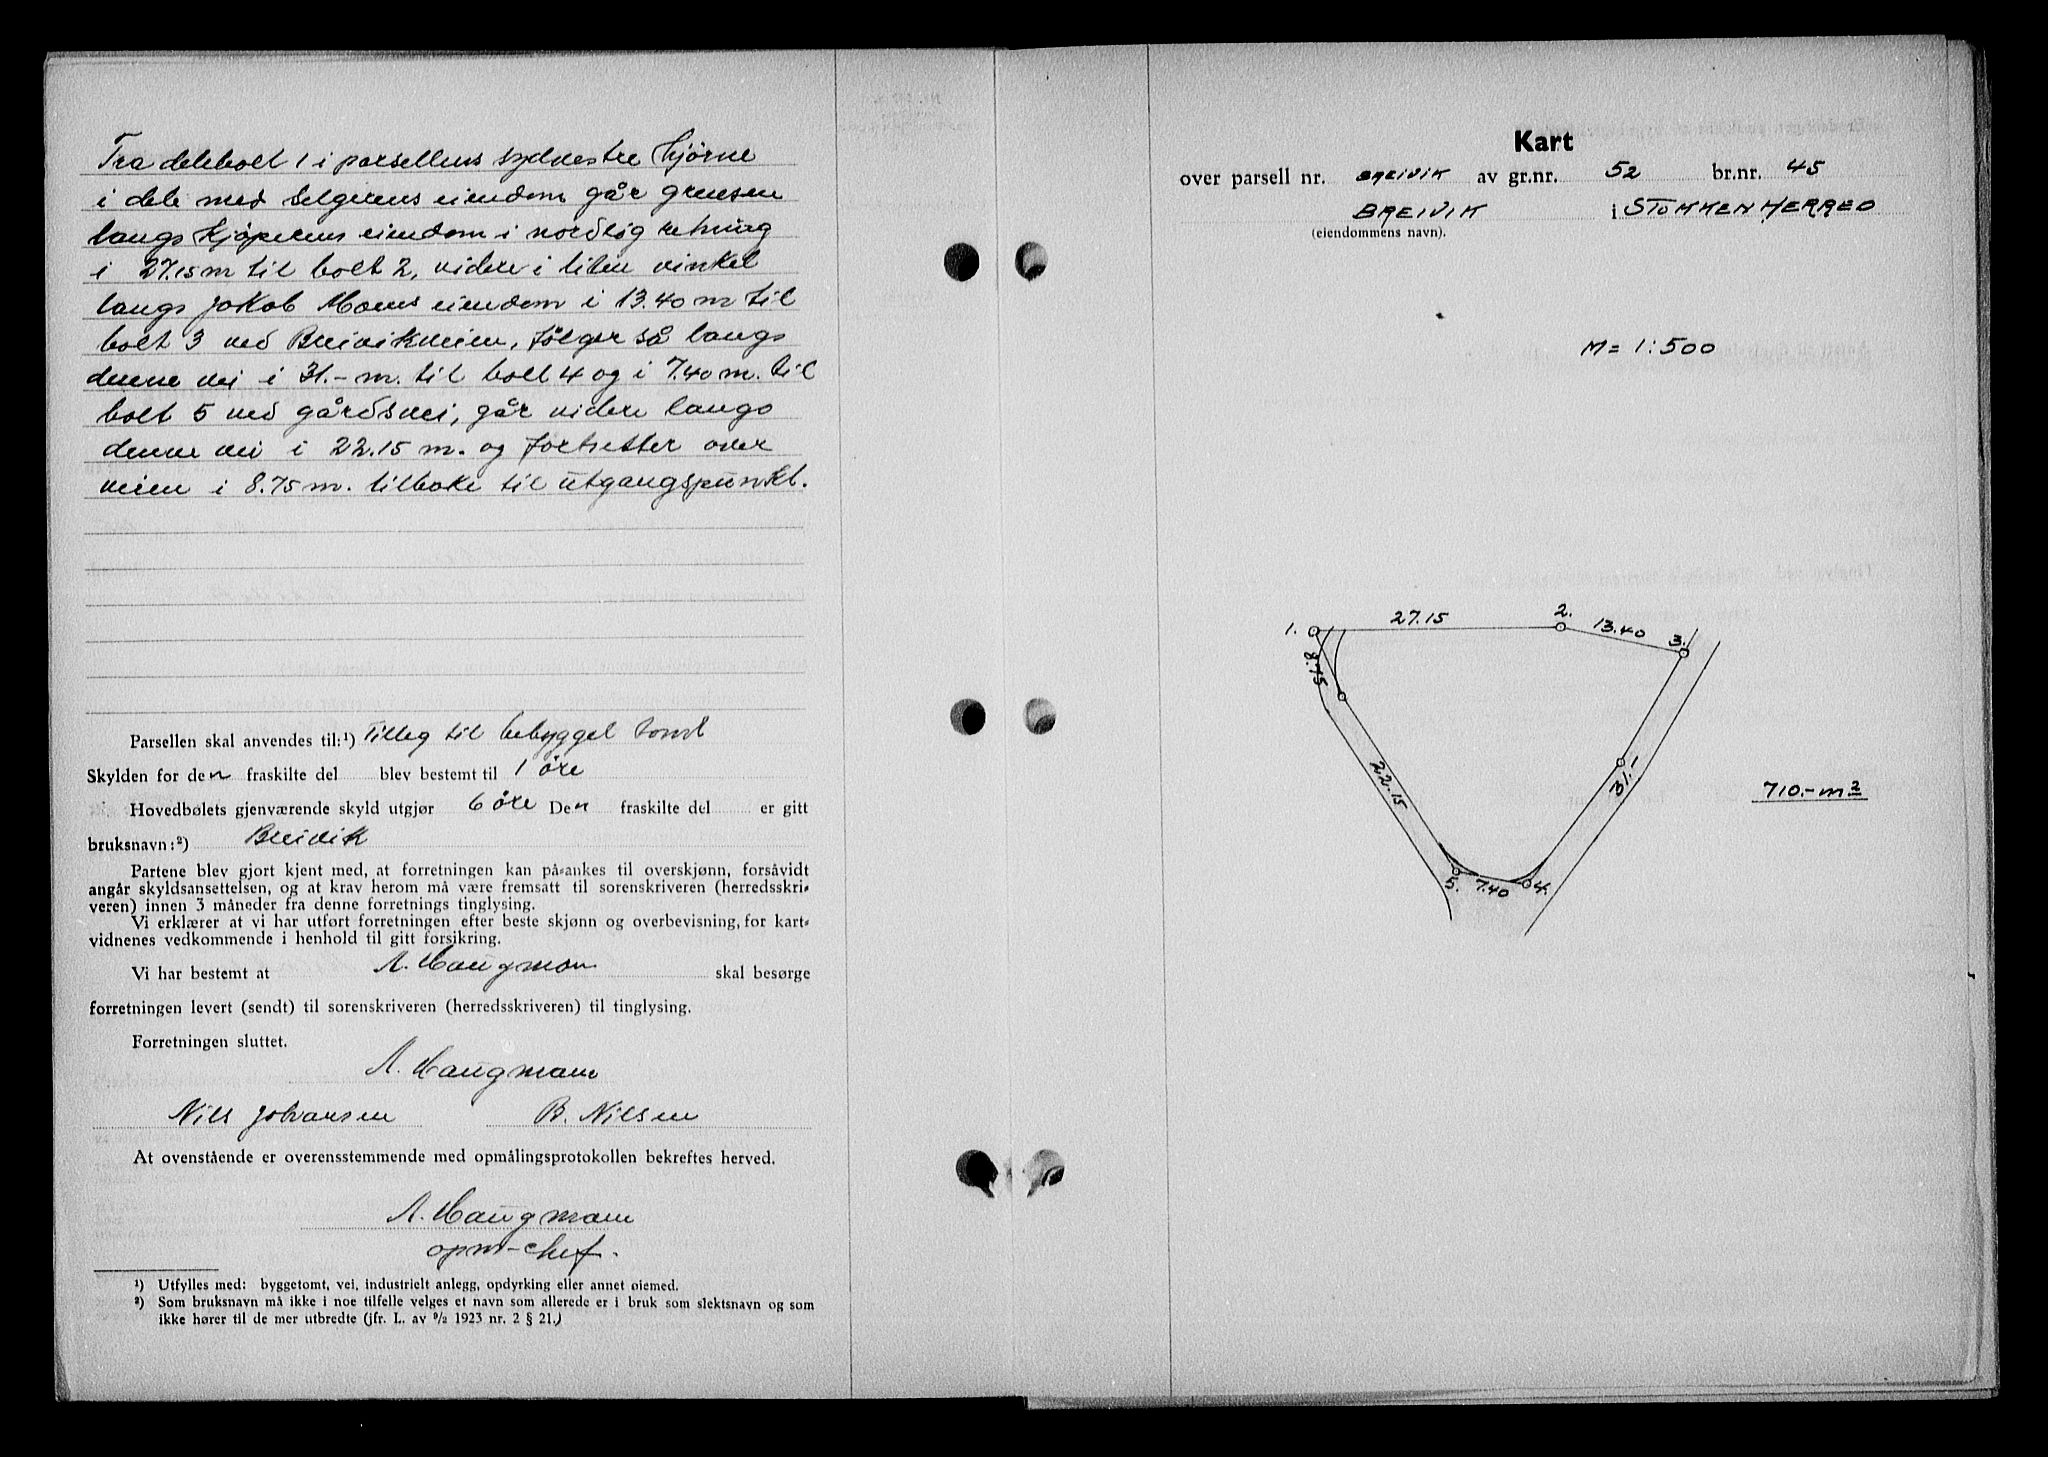 Fra delebolt 1 i parsellens sydvestre hjørne
i dele med selgerens eiendom går grensen
langs kjøperens eiendom i nordlig retning
i 27.15 m til bolt 2, videre i liten vinkel
langs Jakob Moens eiendom i 13.40 m til
bolt 3 ved Breivikveien, følger så langs
denne vei i 31.- m. til bolt 4 og i 7.40 m. til
bolt 5 ved gårdsvei, går videre langs
denne vei i 22.15 m. og fortsetter over
veien i 8.75 m. tilbake til utgangspunkt.
Parsellen skal anvendes til:¹) Tilleg til bebygget tomt
Skylden for den fraskilte del blev bestemt til 1 øre
Hovedbølets gjenværende skyld utgjør 6 øre Den fraskilte del er gitt
bruksnavn:²) Breivik
Partene blev gjort kjent med, at forretningen kan på-ankes til overskjønn, forsåvidt
angår skyldsansettelsen, og at krav herom må være fremsatt til sorenskriveren (herredsskri-
veren) innen 3 måneder fra denne forretnings tinglysing.
Vi erklærer at vi har utført forretningen efter beste skjønn og overbevisning, for kart-
vidnenes vedkommende i henhold til gitt forsikring.
Vi har bestemt at A. Haugmann skal besørge
forretningen levert (sendt) til sorenskriveren (herredsskriveren) til tinglysing.
Forretningen sluttet.
A. Haugmann
Nils Johansen B. Nilsen
At ovenstående er overensstemmende med opmålingsprotokollen bekreftes herved.
A. Haugmann
opm-chef.
¹) Utfylles med: byggetomt, vei, industrielt anlegg, opdyrking eller annet øiemed.
²) Som bruksnavn må ikke i noe tilfelle velges et navn som allerede er i bruk som slektsnavn og som
ikke hører til de mer utbredte (jfr. L. av ⁹/₂ 1923 nr. 2 § 21.)
Kart
over parsell nr. BREIVIK av gr.nr. 52 br.nr. 45
BREIVIK i STOKKEN HERRED
(eiendommens navn).
M = 1:500
1. 27.15 2. 13.40 3.
8.75
22.15 31.-
710.- m²
5. 7.40 4.